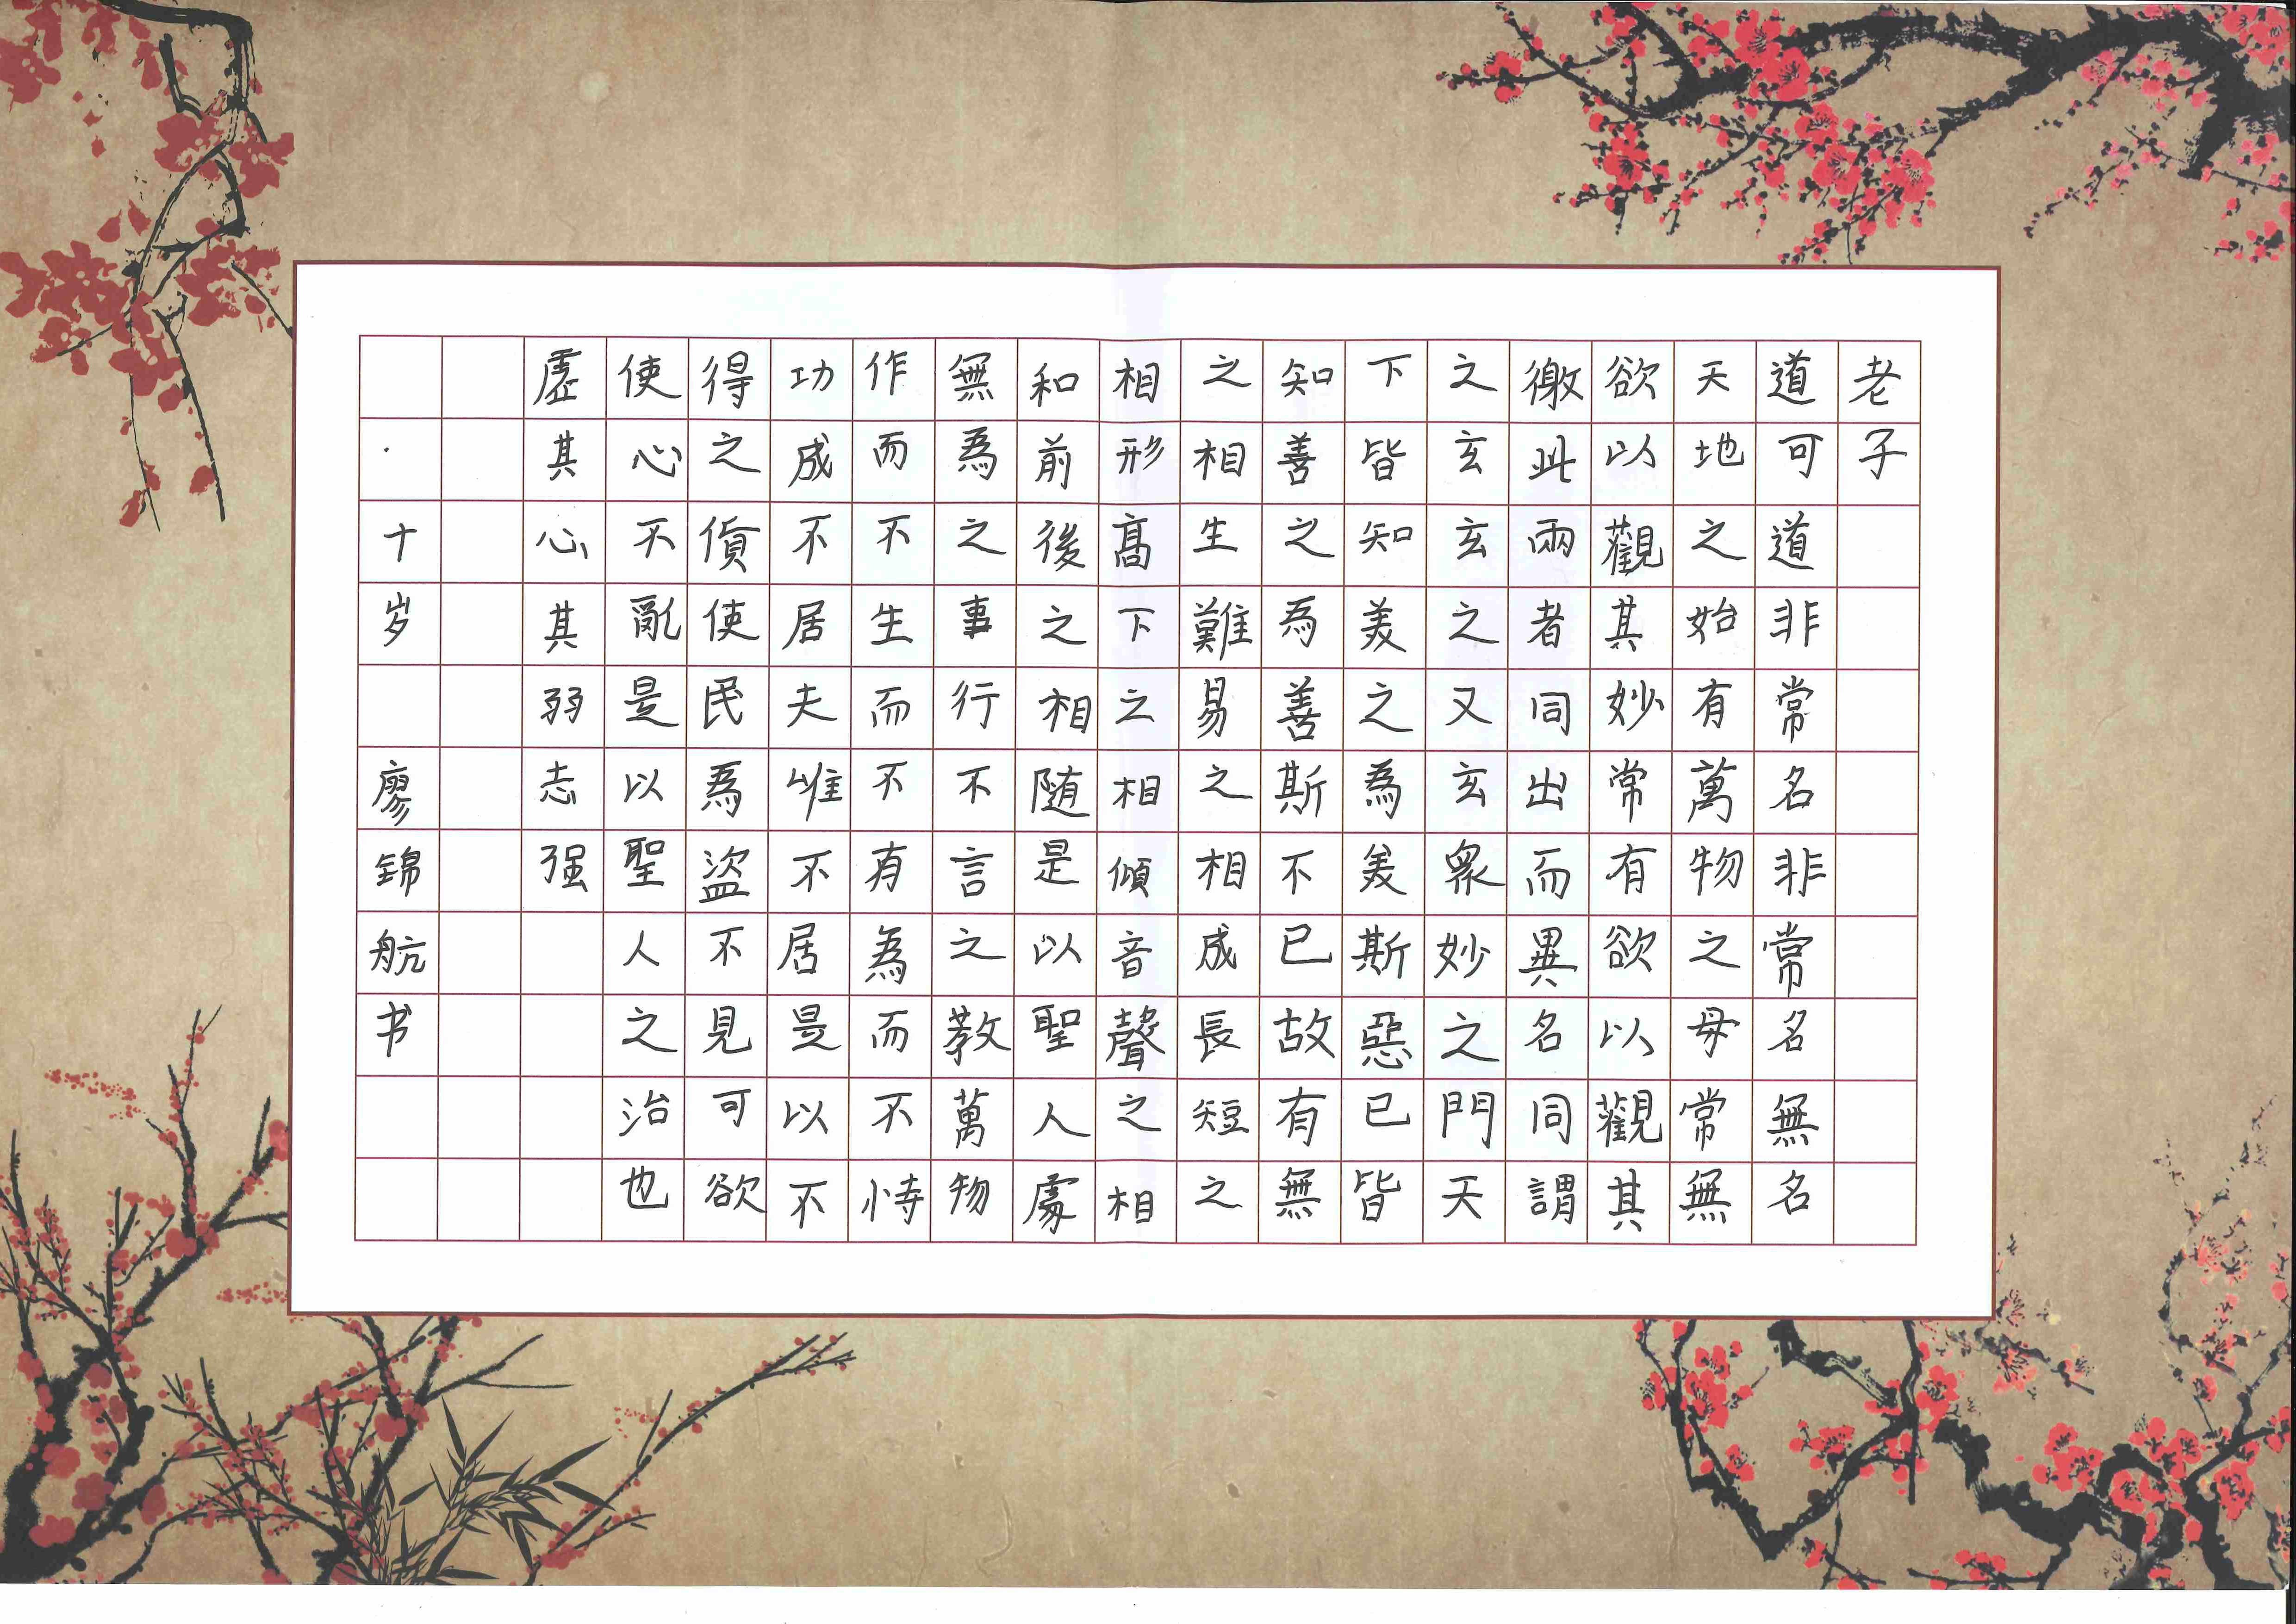 老子
道可道非常名非常名無名
天地之始有萬物之母常無
欲以觀其妙常有欲以觀其
徼此兩者同出而異名同謂
之玄玄之又玄眾妙之門天
下皆知美之為美斯惡已皆
知善之為善斯不已故有無
之相生難易之相成長短之
相形髙下之相傾音聲之相
和前後之相随是以聖人處
無為之事行不言之教萬物
作而不生而不有為而不恃
功成不居夫唯不居是以不
得之貨使民為盜不見可欲
使心不亂是以聖人之治也
虛其心其弱志强
十岁 廖錦航书